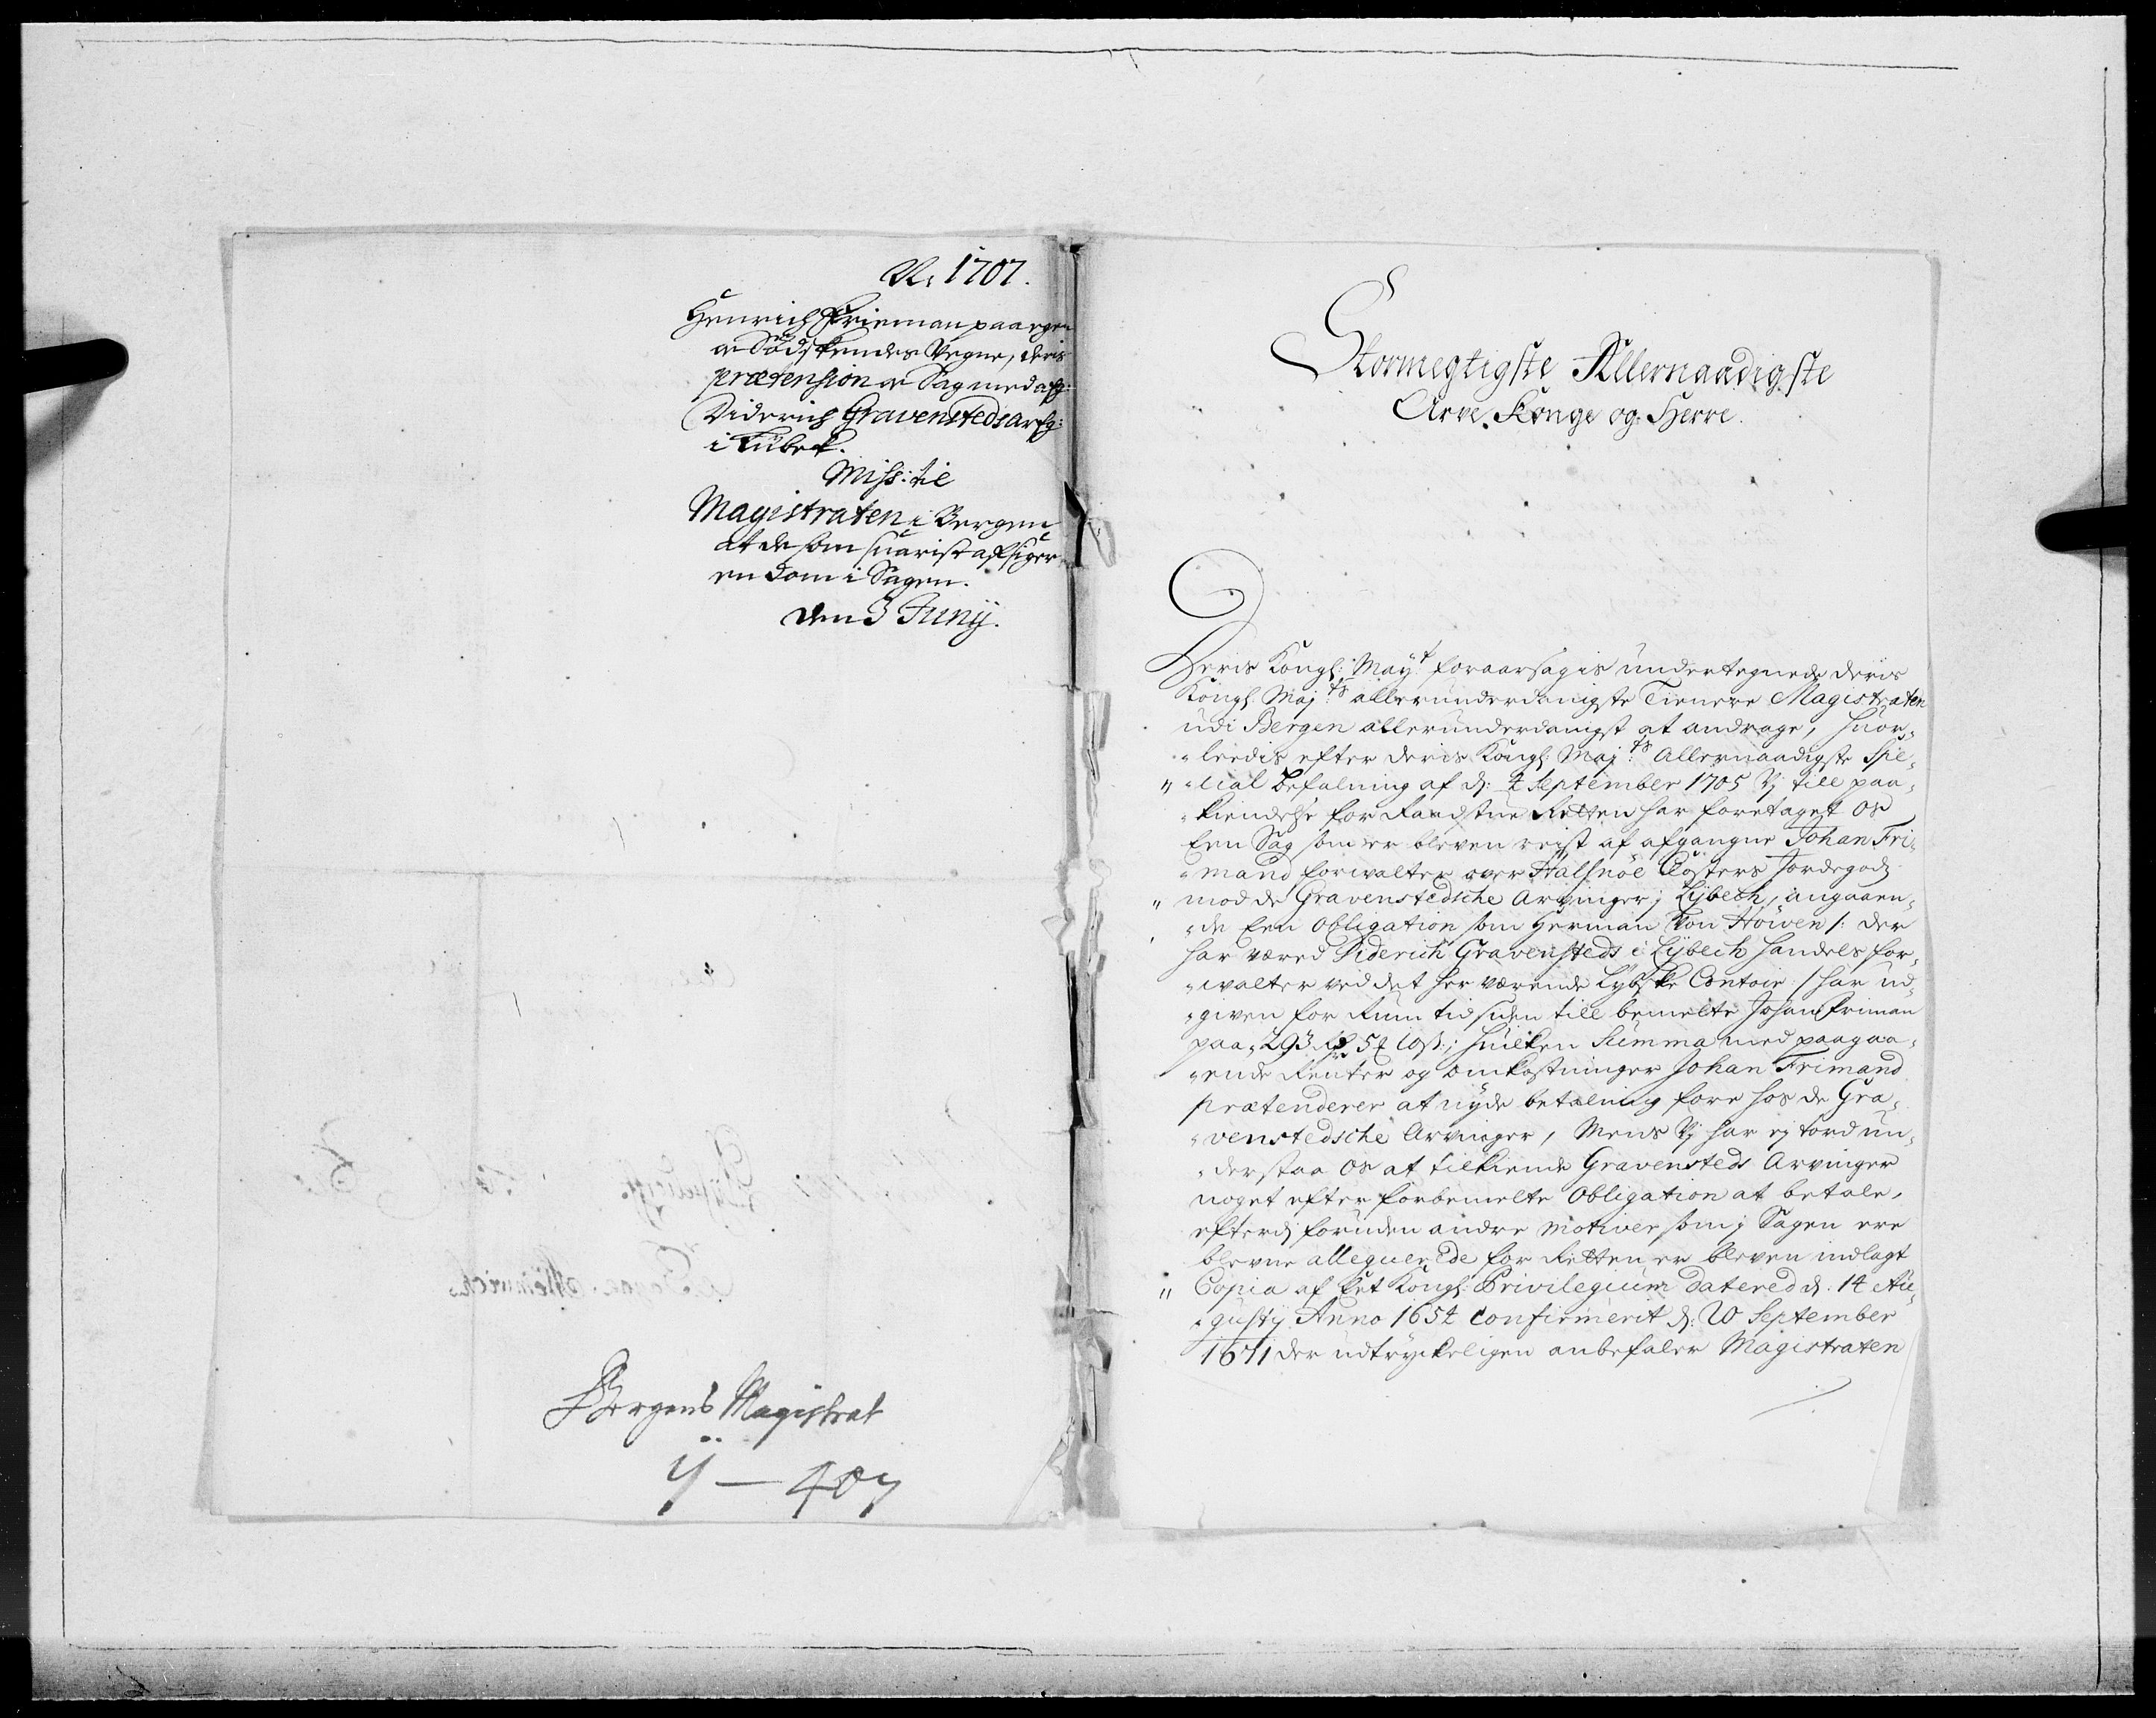 N. 1707.
Henrich Frieman paa egen
oc Södskendes Vegne, deris
prætension oc Sag med afg:
Diderich Gravensteds arfg:
i Lübek.
Miss: til
Magistraten i Bergen
at de som snarist afsiger
en Dom i Sagen.
den 3 Junij.
Bergens Magistrat
ÿ — 407
Stormegtigste Allernaadigste
Arve Konge og Herre.
Deris Kongl: Mayt foraarsagis undertegnede Deris
Kongl. Maj:ts allerunderdanigste Tienere Magistraten
udi Bergen allerunderdanigst at andrage, huor-
-leedis efter Deris Kongl: Maj:ts Allernaadigste Spe-
-cial Befalning af d: 4 September 1705 Vj till paa-
-kiendelse for Raadstue Retten har foretaget os
Een Sag som er bleven reist af afgangne Johan Fri-
-mand forvalter over Halsnöe Closters Jordegodz
mod de Gravenstedsche Arvinger j Lybech, angaaen-
-de Een Obligation som Herman Von Höwen /: der
har væred Diderich Gravensteds i Lÿbech Handels for-
-walter ved det her værende Lybske Contoir :/ har ud-
-given for Rum tid siden till bemelte Johan Friman
paa 293 Rdr 5 ₰ 10 s:; huilken Summa med paagaa-
-ende Renter og Omkostninger Johan Frimand
prætenderer at nyde betaling fore hos de Gra-
-venstedsche Arvinger, Mens Vj har ej tord un-
-derstaa os at tilkiende Gravensteds Arvinger
noget efter forbemelte Obligation at betale,
efterdj foruden andre motiver som j Sagen ere
blevne alleguerede for Retten er bleven indlagt
Copia af Eet Kongl: Privilegium datered d. 14 Au-
-gusty Anno 1654 confirmerit d: 20 September
1671 der udtryckeligen anbefaler Magistraten